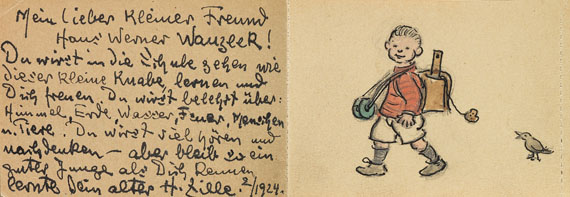 Mein lieber kleiner Freund
Hans Werner Wanzeck!
Du wirst in die Schule gehen wie
dieser kleine Knabe, lernen und
Dich freuen. Du wirst belehrt über:
Himmel, Erde, Wasser, Feuer, Menschen
u. Tiere. Du wirst viel hören und
nachdenken – aber bleib so ein
guter Junge als Dich kennen
lernte Dein alter H. Zille. 2/1924.